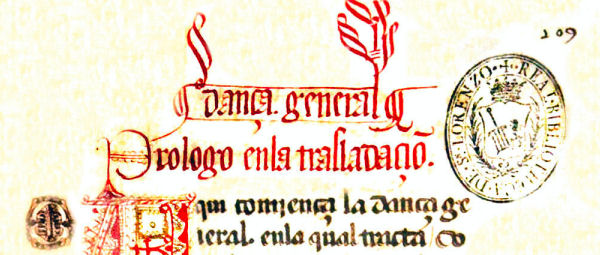 109
dança. general
Prologo enla trasladaçiõ.
Aqui comiença la dança ge
neral. enla qual tracta co
REAL BIBLIOTECA DE S. LORENZO